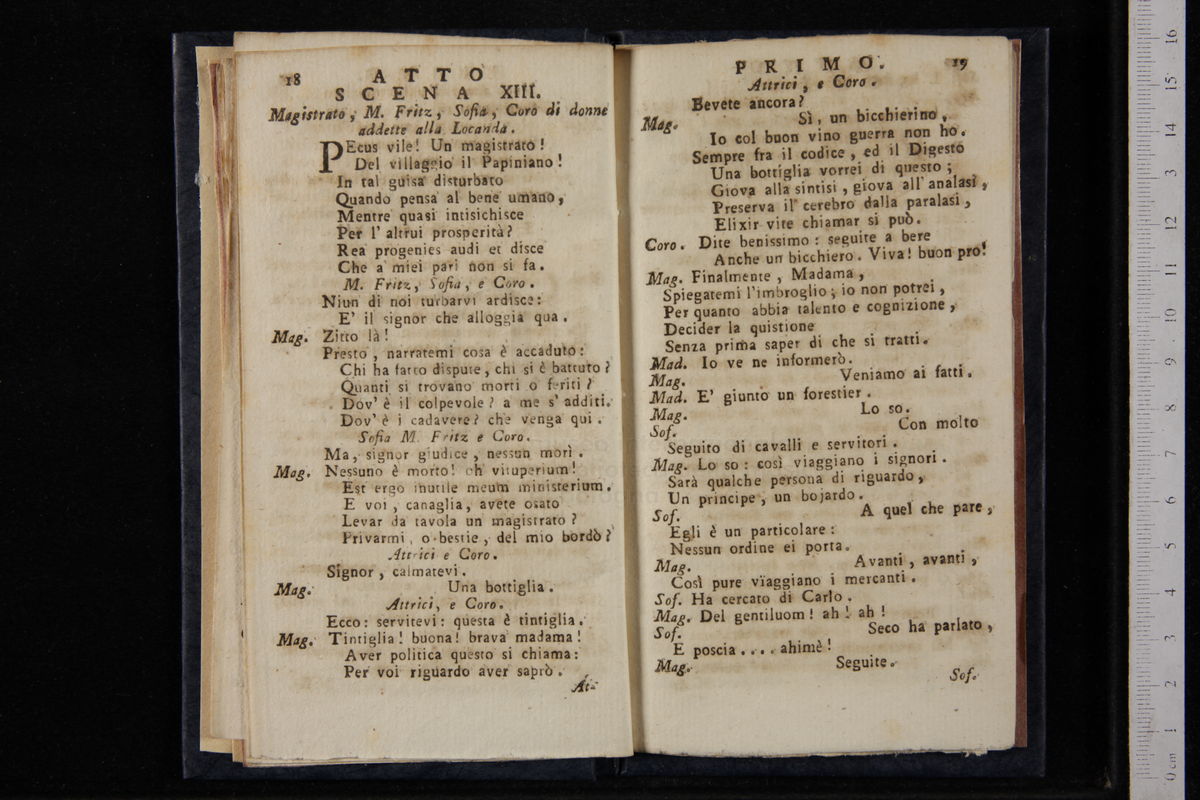 18
ATTO
SCENA XIII.
Magistrato, M. Fritz, Sofia, Coro di donne
addette alla Locanda.
PEcus vile! Un magistrato!
Del villaggio il Papiniano!
In tal guisa disturbato
Quando pensa al bene umano,
Mentre quasi intisichisce
Per l'altrui prosperità?
Rea progenies audi et disce
Che a miei pari non si fa.
M. Fritz, Sofia, e Coro.
Niun di noi turbarvi ardisce:
E' il signor che alloggia qua.
Mag. Zitto là!
Presto, narratemi cosa è accaduto:
Chi ha fatto dispute, chi si è battuto?
Quanti si trovano morti o feriti?
Dov'è il colpevole? a me s'additi.
Dov'è i cadavere? che venga qui.
Sofia M. Fritz e Coro.
Ma, signor giudice, nessun morì.
Mag. Nessuno è morto! oh vituperium!
Est ergo inutile meum ministerium.
E voi, canaglia, avete osato
Levar da tavola un magistrato?
Privarmi, o bestie, del mio bordò?
Attrici e Coro.
Signor, calmatevi.
Mag. Una bottiglia.
Attrici, e Coro.
Ecco: servitevi: questa è tintiglia.
Mag. Tintiglia! buona! brava madama!
Aver politica questo si chiama:
Per voi riguardo aver saprò.
At-
PRIMO. 19
Attrici, e Coro.
Bevete ancora?
Mag. Sì, un bicchierino,
Io col buon vino guerra non ho.
Sempre fra il codice, ed il Digesto
Una bottiglia vorrei di questo;
Giova alla sintisi, giova all'analasi,
Preserva il cerebro dalla paralasi,
Elixir vite chiamar si può.
Coro. Dite benissimo: seguite a bere
Anche un bicchiero. Viva! buon pro!
Mag. Finalmente, Madama,
Spiegatemi l'imbroglio; io non potrei,
Per quanto abbia talento e cognizione,
Decider la quistione
Senza prima saper di che si tratti.
Mad. Io ve ne informerò.
Mag. Veniamo ai fatti.
Mad. E' giunto un forestier.
Mag. Lo so.
Sof. Con molto
Seguito di cavalli e servitori.
Mag. Lo so: così viaggiano i signori.
Sarà qualche persona di riguardo,
Un principe, un bojardo.
Sof. A quel che pare,
Egli è un particolare:
Nessun ordine ei porta.
Mag. Avanti, avanti,
Così pure viaggiano i mercanti.
Sof. Ha cercato di Carlo.
Mag. Del gentiluom! ah! ah!
Sof. Seco ha parlato,
E poscia.... ahimè!
Mag. Seguite.
Sof.
0 cm 1 2 3 4 5 6 7 8 9 10 11 12 13 14 15 16